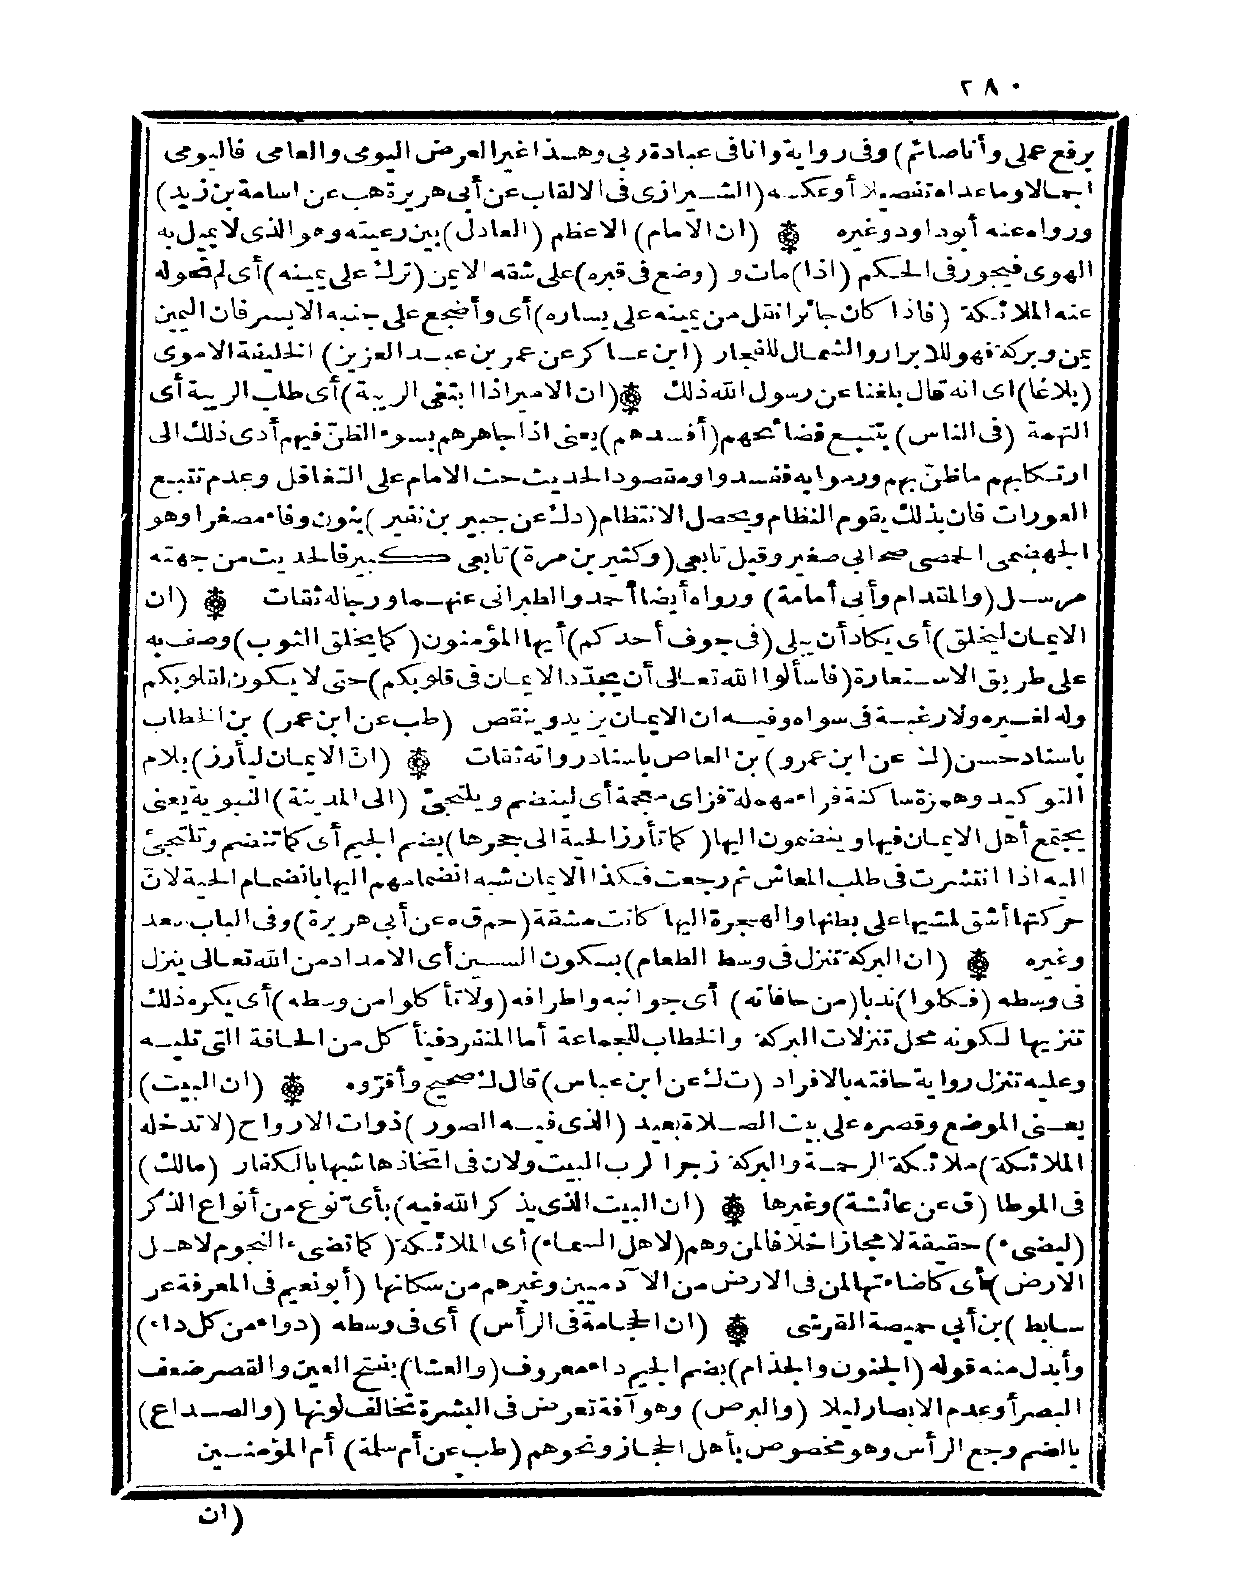 ٢٨٠
يرفع عملى وأنا صائم) وفى رواية وانا فى عبادة ربى وهذا غير العرض اليومى والعامى فاليومى
اجمالا وما عداه تفصيلا أو عكسه (الشيرازى فى الالقاب عن أبى هريرة هب عن اسامة بن زيد)
ورواه عنه أبو داود وغيره ۞ (ان الامام) الاعظم (العادل) بين رعيته وهو الذى لا يميل به
الهوى فيجور فى الحكم (اذا) مات و (وضع فى قبره) على شقه الايمن (ترك على يمينه) أى لم تحوله
عنه الملائكة (فاذا كان جائرا نقل من يمينه على يساره) أى وأضجع على جنبه الايسر فان اليمين
يمن وبركة فهو للابرار والشمال للفجار (ابن عساكر عن عمر بن عبد العزيز) الخليفة الاموى
(بلاغا) اى انه قال بلغنا عن رسول الله ذلك ۞ (ان الامير اذا ابتغى الريبة) أى طلب الريبة أى
التهمة (فى الناس) يتتبع فضائحهم (أفسدهم) يعنى اذا جاهرهم بسوء الظنّ فيهم أدى ذلك الى
ارتكابهم ما ظنّ بهم ورموا به ففسدوا ومقصود الحديث حث الامام على التغافل وعدم تتبع
العورات فان بذلك يقوم النظام ويحصل الانتظام (د ك عن جبير بن نفير) بنون وفاء مصغرا وهو
الجهضمى الحمصى صحابى صغير وقيل تابعى (وكثير بن مرة) تابعى كبير فالحديث من جهته
مرسل (والمقدام وأبى أمامة) ورواه أيضا أحمد والطبرانى عنهما ورجاله ثقات ۞ (ان
الايمان ليخلق) أى يكاد أن يبلى (فى جوف أحدكم) أيها المؤمنون (كما يخلق الثوب) وصف به
على طريق الاستعارة (فاسألوا الله تعالى أن يجدّد الايمان فى قلوبكم) حتى لا يكون لقلوبكم
وله لغيره ولا رغبة فى سواه وفيه ان الايمان يزيد وينقص (طب عن ابن عمر) بن الخطاب
باسناد حسن (ك عن ابن عمرو) بن العاص باسناد رواته ثقات ۞ (انّ الايمان ليأرز) بلام
التوكيد وهمزة ساكنة فراء مهملة فزاى معجمة أى لينضم ويلتجئ (الى المدينة) النبوية يعنى
يجتمع أهل الايمان فيها وينضمون اليها (كما تأرز الحية الى جحرها) بضم الجيم أى كما تنضم وتلتجئ
اليه اذا انتشرت فى طلب المعاش ثم رجعت فكذا الايمان شبه انضمامهم اليها بانضمام الحية لانّ
حركتها أشق لمشيها على بطنها والهجرة اليها كانت مشقة (حم ق ه عن أبى هريرة) وفى الباب سعد
وغيره ۞ (ان البركة تنزل فى وسط الطعام) بسكون السين أى الامداد من الله تعالى ينزل
فى وسطه (فكلوا) ندبا (من حافاته) أى جوانبه واطرافه (ولا تأكلوا من وسطه) أى يكره ذلك
تنزيها لكونه محل تنزلات البركة والخطاب للجماعة أما المنفرد فيأكل من الحافة التى تليه
وعليه تنزل رواية حافته بالافراد (ت ك عن ابن عباس) قال ك صحيح وأقرّوه ۞ (ان البيت)
يعنى الموضع وقصره على بيت الصلاة بعيد (الذى فيه الصور) ذوات الارواح (لا تدخله
الملائكة) ملائكة الرحمة والبركة زجرا لرب البيت ولان فى اتخاذها شبها بالكفار (مالك)
فى الموطا (ق عن عائشة) وغيرها ۞ (ان البيت الذى يذكر الله فيه) بأىّ نوع من أنواع الذكر
(ليضىء) حقيقة لا مجازا خلافا لمن وهم (لاهل السماء) أى الملائكة (كما تضىء النجوم لاهل
الارض) أى كاضاءتها لمن فى الارض من الآدميين وغيرهم من سكانها (أبو نعيم فى المعرفة عن
سابط) بن أبى حميصة القرشى ۞ (ان الحجامة فى الرأس) أى فى وسطه (دواء من كل داء)
وأبدل منه قوله (الجنون والجذام) بضم الجيم داء معروف (والعشا) بفتح العين والقصر ضعف
البصر أو عدم الابصار ليلا (والبرص) وهو آفة تعرض فى البشرة تخالف لونها (والصداع)
بالضم وجع الرأس وهو مخصوص بأهل الحجاز ونحوهم (طب عن أم سلمة) أم المؤمنين
(ان